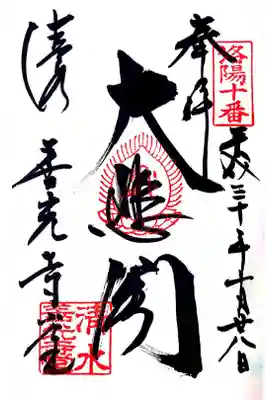 洛陽十番
奉拝
平成三十年十月廿八日
大悲閣
清水 善光寺堂
清水